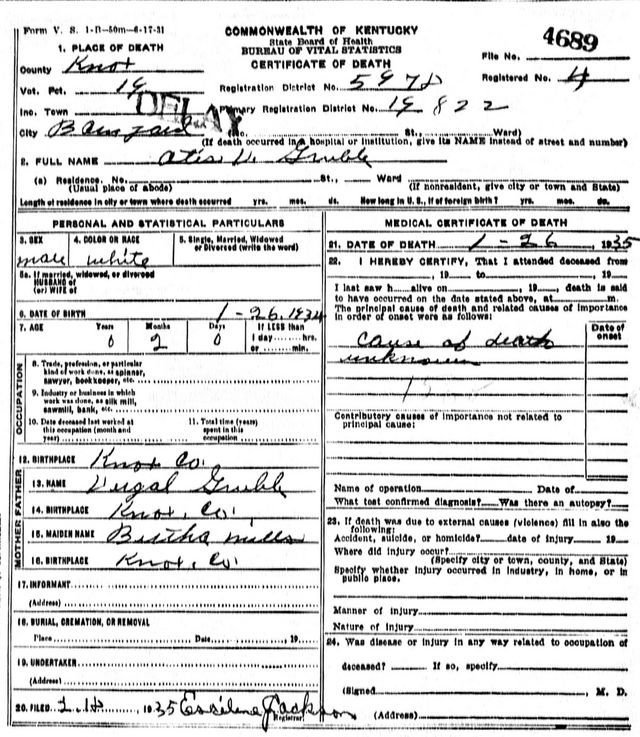 Form V. S. 1-D-50m-6-17-31
COMMONWEALTH OF KENTUCKY
State Board of Health
BUREAU OF VITAL STATISTICS
CERTIFICATE OF DEATH
4689
File No.
Registered No. 4
1. PLACE OF DEATH
County Knox
Vot. Pct. 19
Registration District No. 597D
DELAY
Inc. Town
Primary Registration District No. 19 822
City (No. St., Ward)
(If death occurred in a hospital or institution, give its NAME instead of street and number)
2. FULL NAME V. Grubb
(a) Residence. No. St., Ward
(Usual place of abode) (If nonresident, give city or town and State)
Length of residence in city or town where death occurred yrs. mos. ds. How long in U. S., if of foreign birth? yrs. mos. ds.
PERSONAL AND STATISTICAL PARTICULARS
3. SEX male
4. COLOR OR RACE white
5. Single, Married, Widowed
or Divorced (write the word)
5a. If married, widowed, or divorced
HUSBAND of
(or) WIFE of
6. DATE OF BIRTH 1-26, 1934
7. AGE Years Months Days If LESS than
0 2 0 1 day hrs.
or min.
OCCUPATION
8. Trade, profession, or particular
kind of work done, as spinner,
sawyer, bookkeeper, etc.
9. Industry or business in which
work was done, as silk mill,
sawmill, bank, etc.
10. Date deceased last worked at
this occupation (month and
year)
11. Total time (years)
spent in this
occupation
12. BIRTHPLACE Knox Co.
FATHER
13. NAME Virgal Grubb
14. BIRTHPLACE Knox, Co.
MOTHER
15. MAIDEN NAME Bertha Mills
16. BIRTHPLACE Knox, Co.
17. INFORMANT
(Address)
18. BURIAL, CREMATION, OR REMOVAL
Place Date , 19
19. UNDERTAKER
(Address)
20. FILED , 1935 Jackson
Registrar.
MEDICAL CERTIFICATE OF DEATH
21. DATE OF DEATH 1-26, 1935
22. I HEREBY CERTIFY, That I attended deceased from
, 19 to , 19
I last saw h alive on , 19 , death is said
to have occurred on the date stated above, at m.
The principal cause of death and related causes of importance
in order of onset were as follows:
Date of
onset
Cause of death
unknown
Contributory causes of importance not related to
principal cause:
Name of operation Date of
What test confirmed diagnosis? Was there an autopsy?
23. If death was due to external causes (violence) fill in also the
following:
Accident, suicide, or homicide? date of injury 19
Where did injury occur?
(Specify city or town, county, and State)
Specify whether injury occurred in industry, in home, or in
public place.
Manner of injury
Nature of injury
24. Was disease or injury in any way related to occupation of
deceased? If so, specify
(Signed , M. D.
(Address)